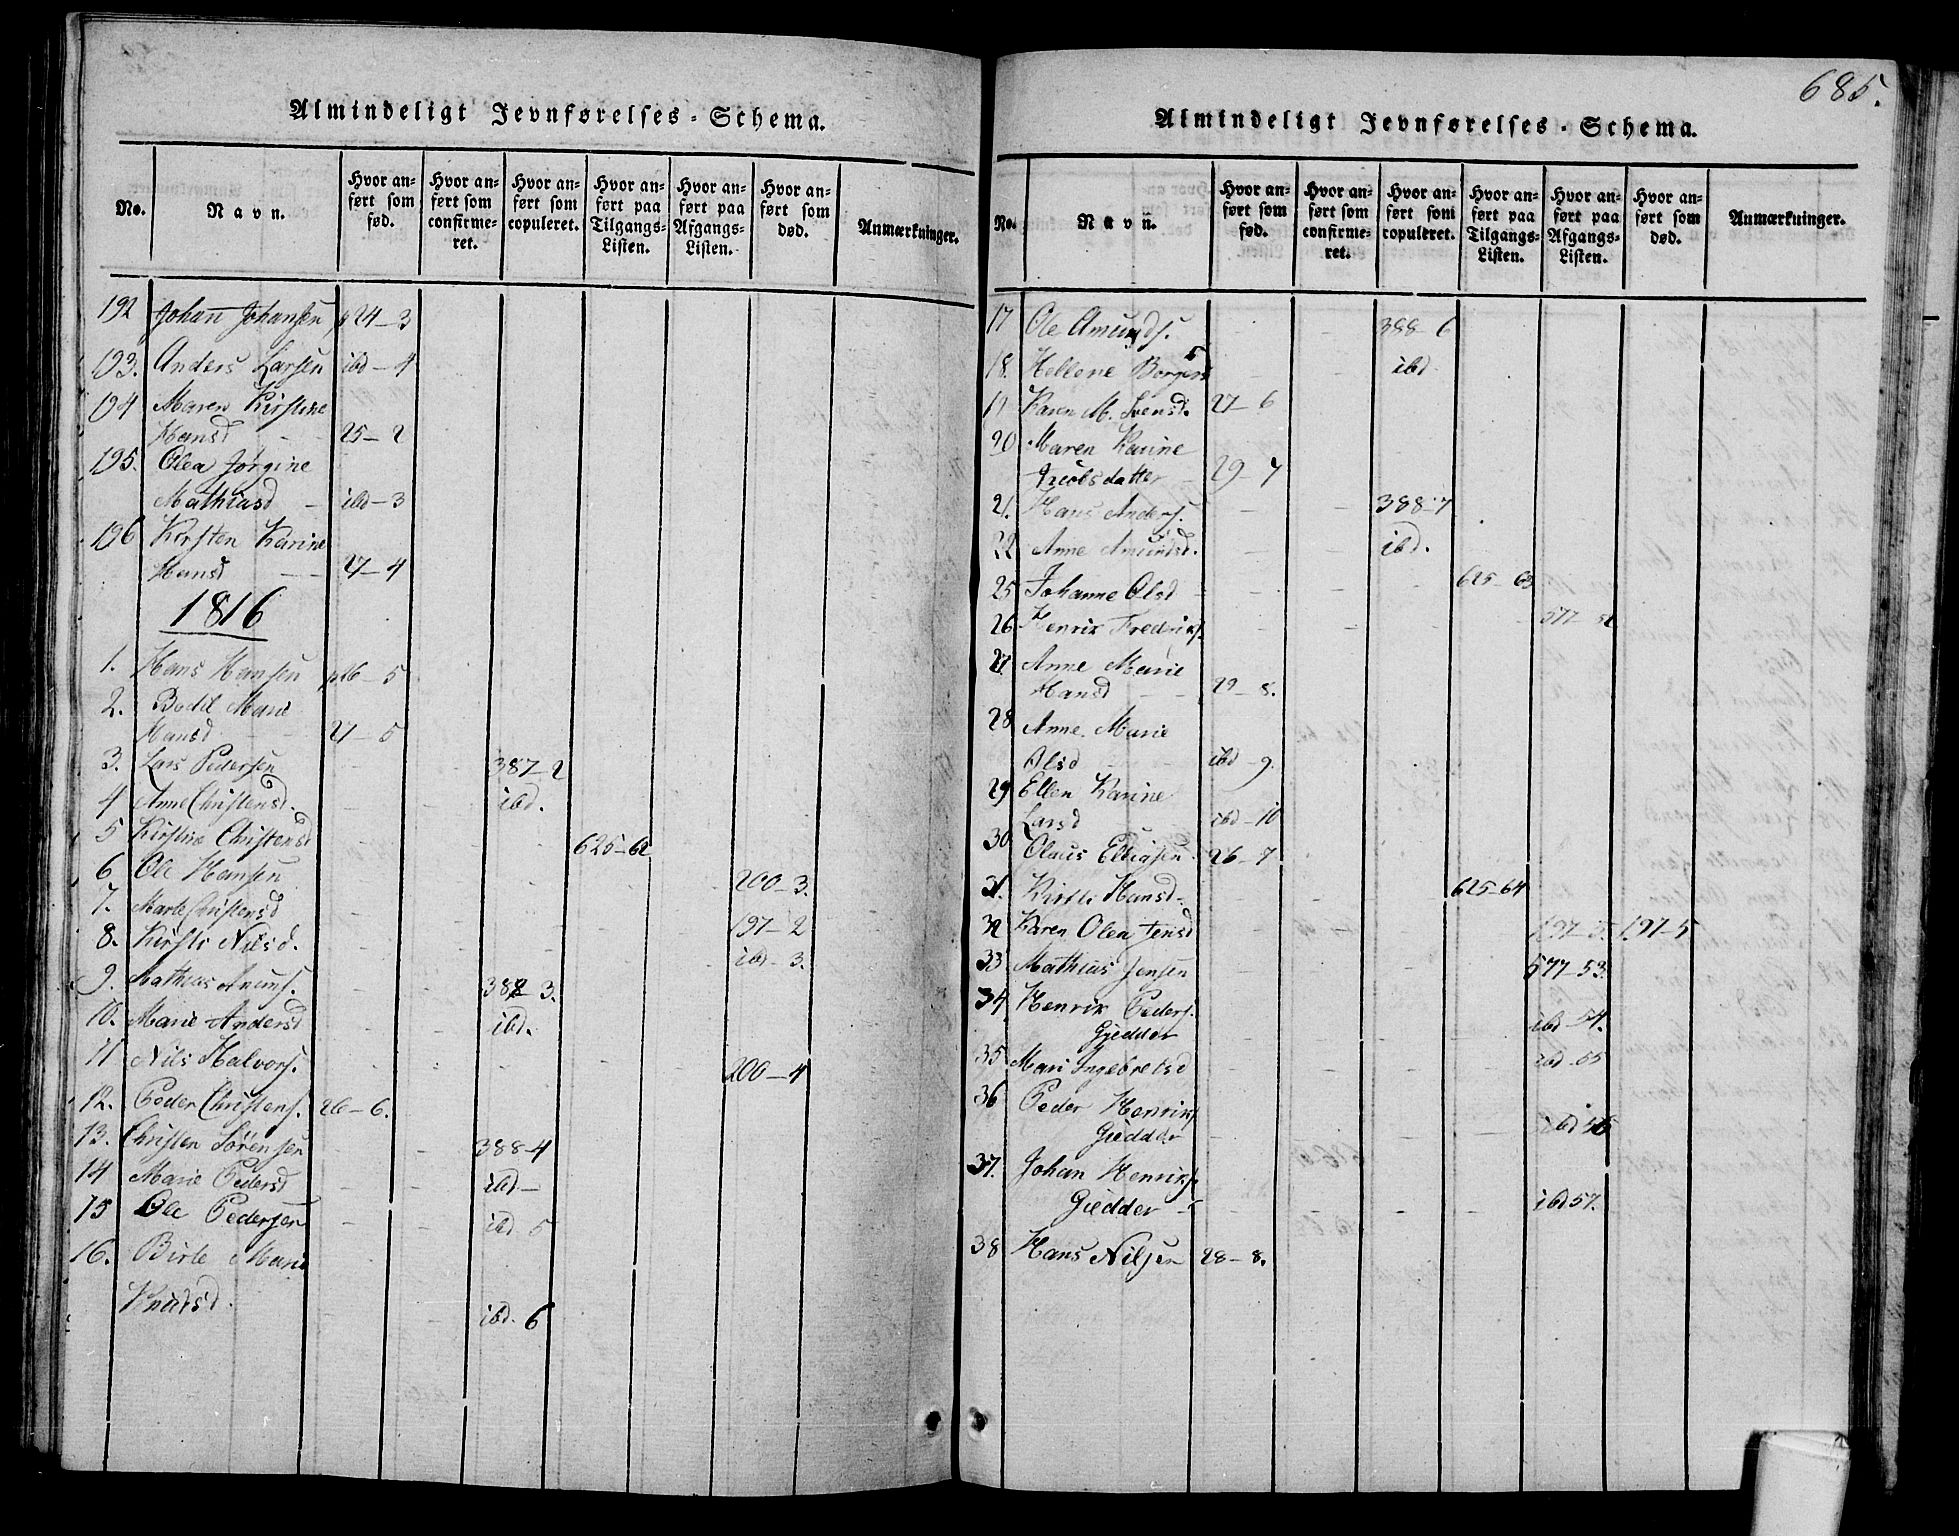 Almindeligt Jevnførelses-Schema.
No. Navn. Hvor anført som fød. Hvor anført som confirmeret. Hvor anført som copuleret. Hvor anført paa Tilgangs-Listen. Hvor anført paa Afgangs-Listen. Hvor anført som død. Anmærkninger.
192 Johan Johansen p 24-3
193. Anders Larsen ibd-4
194 Maren Kirstine
Hansd - - 25-2
195. Olea Jørgine
Mathiasd - ibd-3
196 Kirsten Karine
Hansd - - 27-4
1816
1. Hans Hansen p26-5
2. Bodil Marie
Hansd - - 27-5
3. Lars Pedersen - - 387-2
4 Anne Christensd. - - ibd.
5 Kirstine Christensd - - - 625-62
6 Ole Hansen - - - - - 200-3.
7. Marte Christensd - - - - - 197-2
8. Kirsti Nilsd. - - - - - ibd-3.
9. Mathias Amunds. - - 388-3.
10. Marie Andersd - - ibd.
11 Nils Halvors. - - - - - 200-4
12. Peder Christens. 26-6.
13. Christen Sörensen - - 388-4
14 Marie Pedersd - - ibd-
15 Ole Pedersen - - ibd 5
16. Birte Marie
Knudsd. - - ibd. 6
685.
Almindeligt Jevnførelses-Schema.
No. Navn. Hvor anført som fød. Hvor anført som confirmeret. Hvor anført som copuleret. Hvor anført paa Tilgangs-Listen. Hvor anført paa Afgangs-Listen. Hvor anført som død. Anmærkninger.
17 Ole Amunds. - - 388-6
18. Hellene Borgers - - ibd
19 Karen M. Svensd. 27-6
20 Maren Karine
Jacobsdatter - 29-7
21. Hans Anders. - - 388-7
22 Anne Amundsd. - - ibd.
25 Johanne Olsd - - - 625-63
26 Henrik Fredriks. - - - - 577-52
27. Anne Marie
Hansd - - 29-8.
28 Anne Marie
Olsd - - ibd-9.
29 Ellen Karine
Larsd - ibd-10
30 Olaus 26-7
31. Kirsti Hansd - - - 625-64
32 Karen Olea Jensd - - - - 197-5
33 Mathias Jensen - - - - 577-53
34. Henrik Peders.
Giedder - - - - ibd 54.
35 Mari Ingebretsd - - - - ibd-55
36 Peder Henriks.
Giedder - - - - ibd 56
37. Johan Henriks.
Giedder - - - - - ibd 57.
38 Hans Nilsen 28-8.